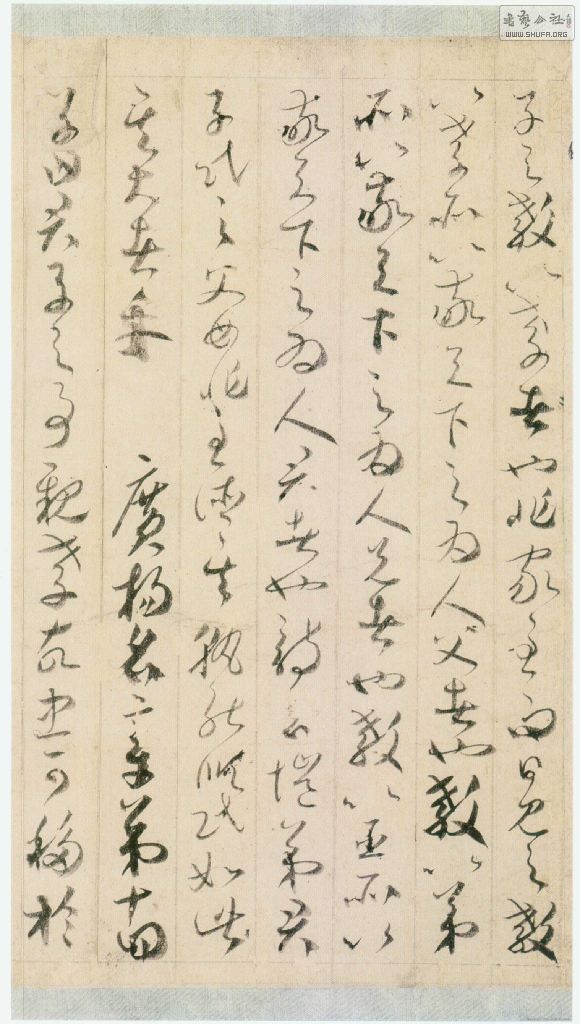 子之教以孝者也非家至而日見之教
以孝所以敬天下之為人父者也教以弟
所以敬天下之為人兄者也教以臣所以
敬天下之為人君者也詩云愷弟君
子民之父母非至德其孰能順民如此
其大者乎 廣揚名章第十四
子曰君子之事親孝故忠可移於
書藝公社
WWW.SHUFA.ORG